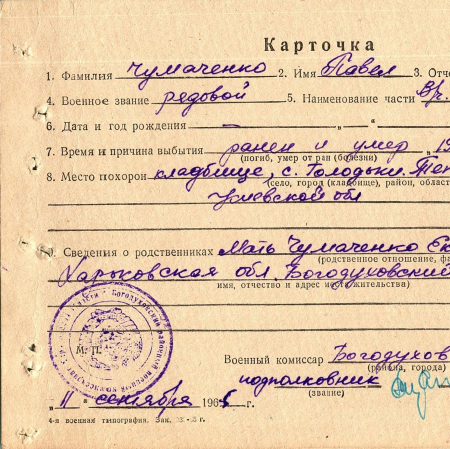 Карточка
1. Фамилия Чумаченко 2. Имя Павел 3. Отче
4. Военное звание рядовой 5. Наименование части
6. Дата и год рождения — „ „
7. Время и причина выбытия ранен и умер
(погиб, умер от ран (болезни)
8. Место похорон кладбище, с. Голодьки
(село, город (кладбище), район, област
Киевской обл
9. Сведения о родственниках Мать Чумаченко
(родственное отношение, фа
Харьковская обл. Богодуховский
имя, отчество и адрес местожительства)
М. П.
Военный комиссар Богодухов
(района, города)
подполковник
(звание)
„ 11 “ сентября 196 г.
4-я военная типография. Зак.